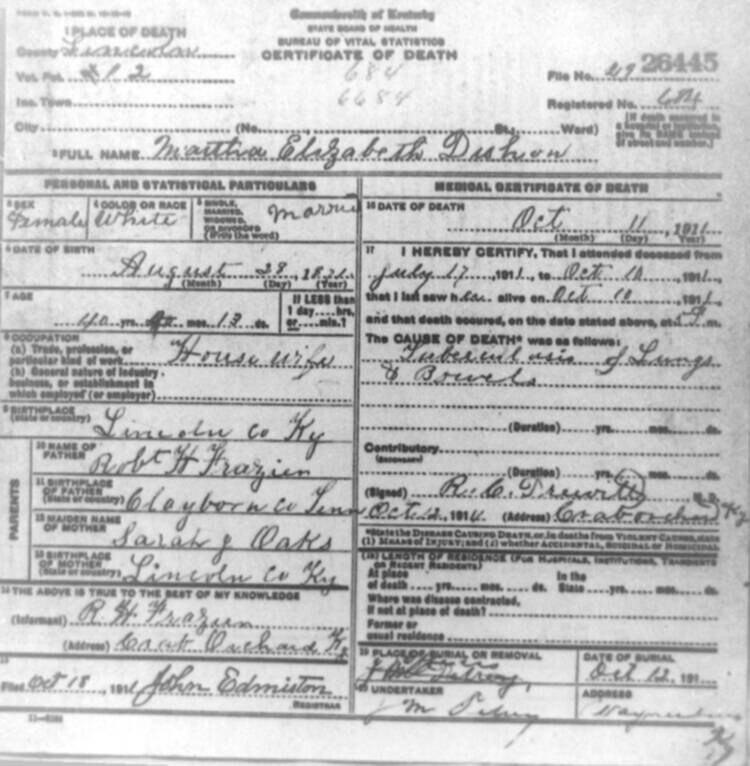 Commonwealth of Kentucky
STATE BOARD OF HEALTH
BUREAU OF VITAL STATISTICS
CERTIFICATE OF DEATH
1 PLACE OF DEATH
County Lincoln
Vot. Pct. 2
Inc. Town
City (No. St.; Ward)
684
6684
File No. 49 26445
Registered No. 684
(If death occurred in a hospital or institution, give its NAME instead of street and number.)
2 FULL NAME Martha Elizabeth Dishon
PERSONAL AND STATISTICAL PARTICULARS
3 SEX Female
4 COLOR OR RACE White
5 SINGLE, MARRIED, WIDOWED, OR DIVORCED (Write the word) Married
6 DATE OF BIRTH
August 28, 1871
(Month) (Day) (Year)
7 AGE
40 yrs. mos. 13 ds.
If LESS than 1 day ... hrs. or ... min.?
8 OCCUPATION
(a) Trade, profession, or particular kind of work House wife
(b) General nature of industry, business, or establishment in which employed (or employer)
9 BIRTHPLACE (State or country) Lincoln Co Ky
PARENTS
10 NAME OF FATHER Robt H Frazier
11 BIRTHPLACE OF FATHER (State or country) Clayborn Co Tenn
12 MAIDEN NAME OF MOTHER Sarah J Oaks
13 BIRTHPLACE OF MOTHER (State or country) Lincoln Co Ky
14 THE ABOVE IS TRUE TO THE BEST OF MY KNOWLEDGE
(Informant) R. H. Frazier
(Address) Crab Orchard Ky
15
Filed Oct 18, 1911 John Edmiston
REGISTRAR
MEDICAL CERTIFICATE OF DEATH
16 DATE OF DEATH
Oct 11, 1911
(Month) (Day) (Year)
17 I HEREBY CERTIFY, That I attended deceased from
July 17, 1911, to Oct 10, 1911,
that I last saw her alive on Oct 10, 1911,
and that death occured, on the date stated above, at 5 m.
The CAUSE OF DEATH* was as follows:
Tuberculosis of Lungs
& Bowels
(Duration) yrs. mos. ds.
Contributory
(Secondary)
(Duration) yrs. mos. ds.
(Signed) R. C. Truitt M. D.
Oct 12, 1911 (Address) Crab orchard Ky
*State the DISEASE CAUSING DEATH, or, in deaths from VIOLENT CAUSES, state (1) MEANS OF INJURY; and (2) whether ACCIDENTAL, SUICIDAL or HOMICIDAL.
(18) LENGTH OF RESIDENCE (FOR HOSPITALS, INSTITUTIONS, TRANSIENTS OR RECENT RESIDENTS)
At place of death yrs. mos. ds. In the State yrs. mos. ds.
Where was disease contracted, if not at place of death?
Former or usual residence
19 PLACE OF BURIAL OR REMOVAL
DATE OF BURIAL
Oct 12, 191
20 UNDERTAKER
J M
ADDRESS
Ky